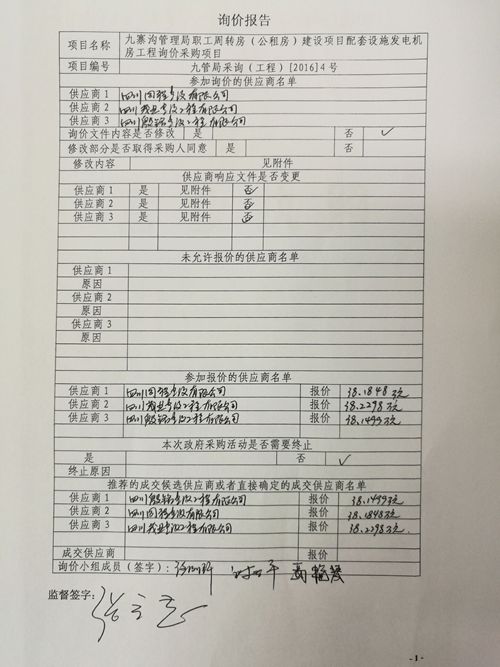 询价报告
项目名称 九寨沟管理局职工周转房（公租房）建设项目配套设施发电机房工程询价采购项目
项目编号 九管局采询（工程）[2016]4号
参加询价的供应商名单
供应商1 四川 建设有限公司
供应商2 四川 建设工程有限公司
供应商3 四川 建设工程有限公司
询价文件内容是否修改 是 否 ✓
修改部分是否取得采购人同意 是 否
修改内容 见附件
供应商响应文件是否变更
供应商1 是 见附件 否 ✓
供应商2 是 见附件 否 ✓
供应商3 是 见附件 否 ✓
未允许报价的供应商名单
供应商1
原因
供应商2
原因
供应商3
原因
参加报价的供应商名单
供应商1 四川 建设有限公司 报价 38.1848万元
供应商2 四川 建设工程有限公司 报价 38.2298万元
供应商3 四川 建设工程有限公司 报价 38.1499万元
本次政府采购活动是否需要终止
是 否 ✓
终止原因
推荐的成交候选供应商或者直接确定的成交供应商名单
供应商1 四川 建设工程有限公司 报价 38.1499万元
供应商2 四川 建设有限公司 报价 38.1848万元
供应商3 四川 建设工程有限公司 报价 38.2298万元
成交供应商 报价
询价小组成员（签字）：
监督签字：
- 1 -